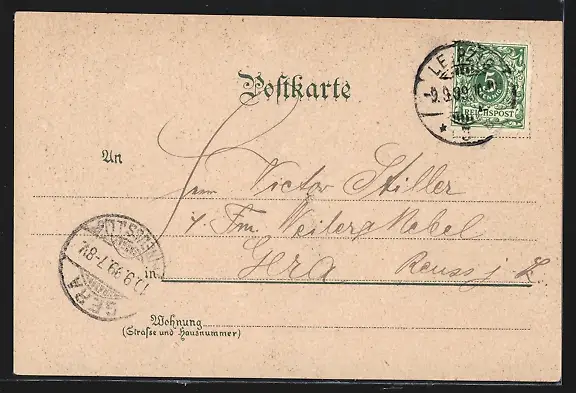 Postkarte
LEIPZIG
9.9.99
5
REICHSPOST
An
Herrn Victor Stiller
p. Fm. Weiler & Nebel
in Gera Reuss j. L.
GERA
10.9.99.7-8V.
Wohnung
(Straße und Hausnummer)